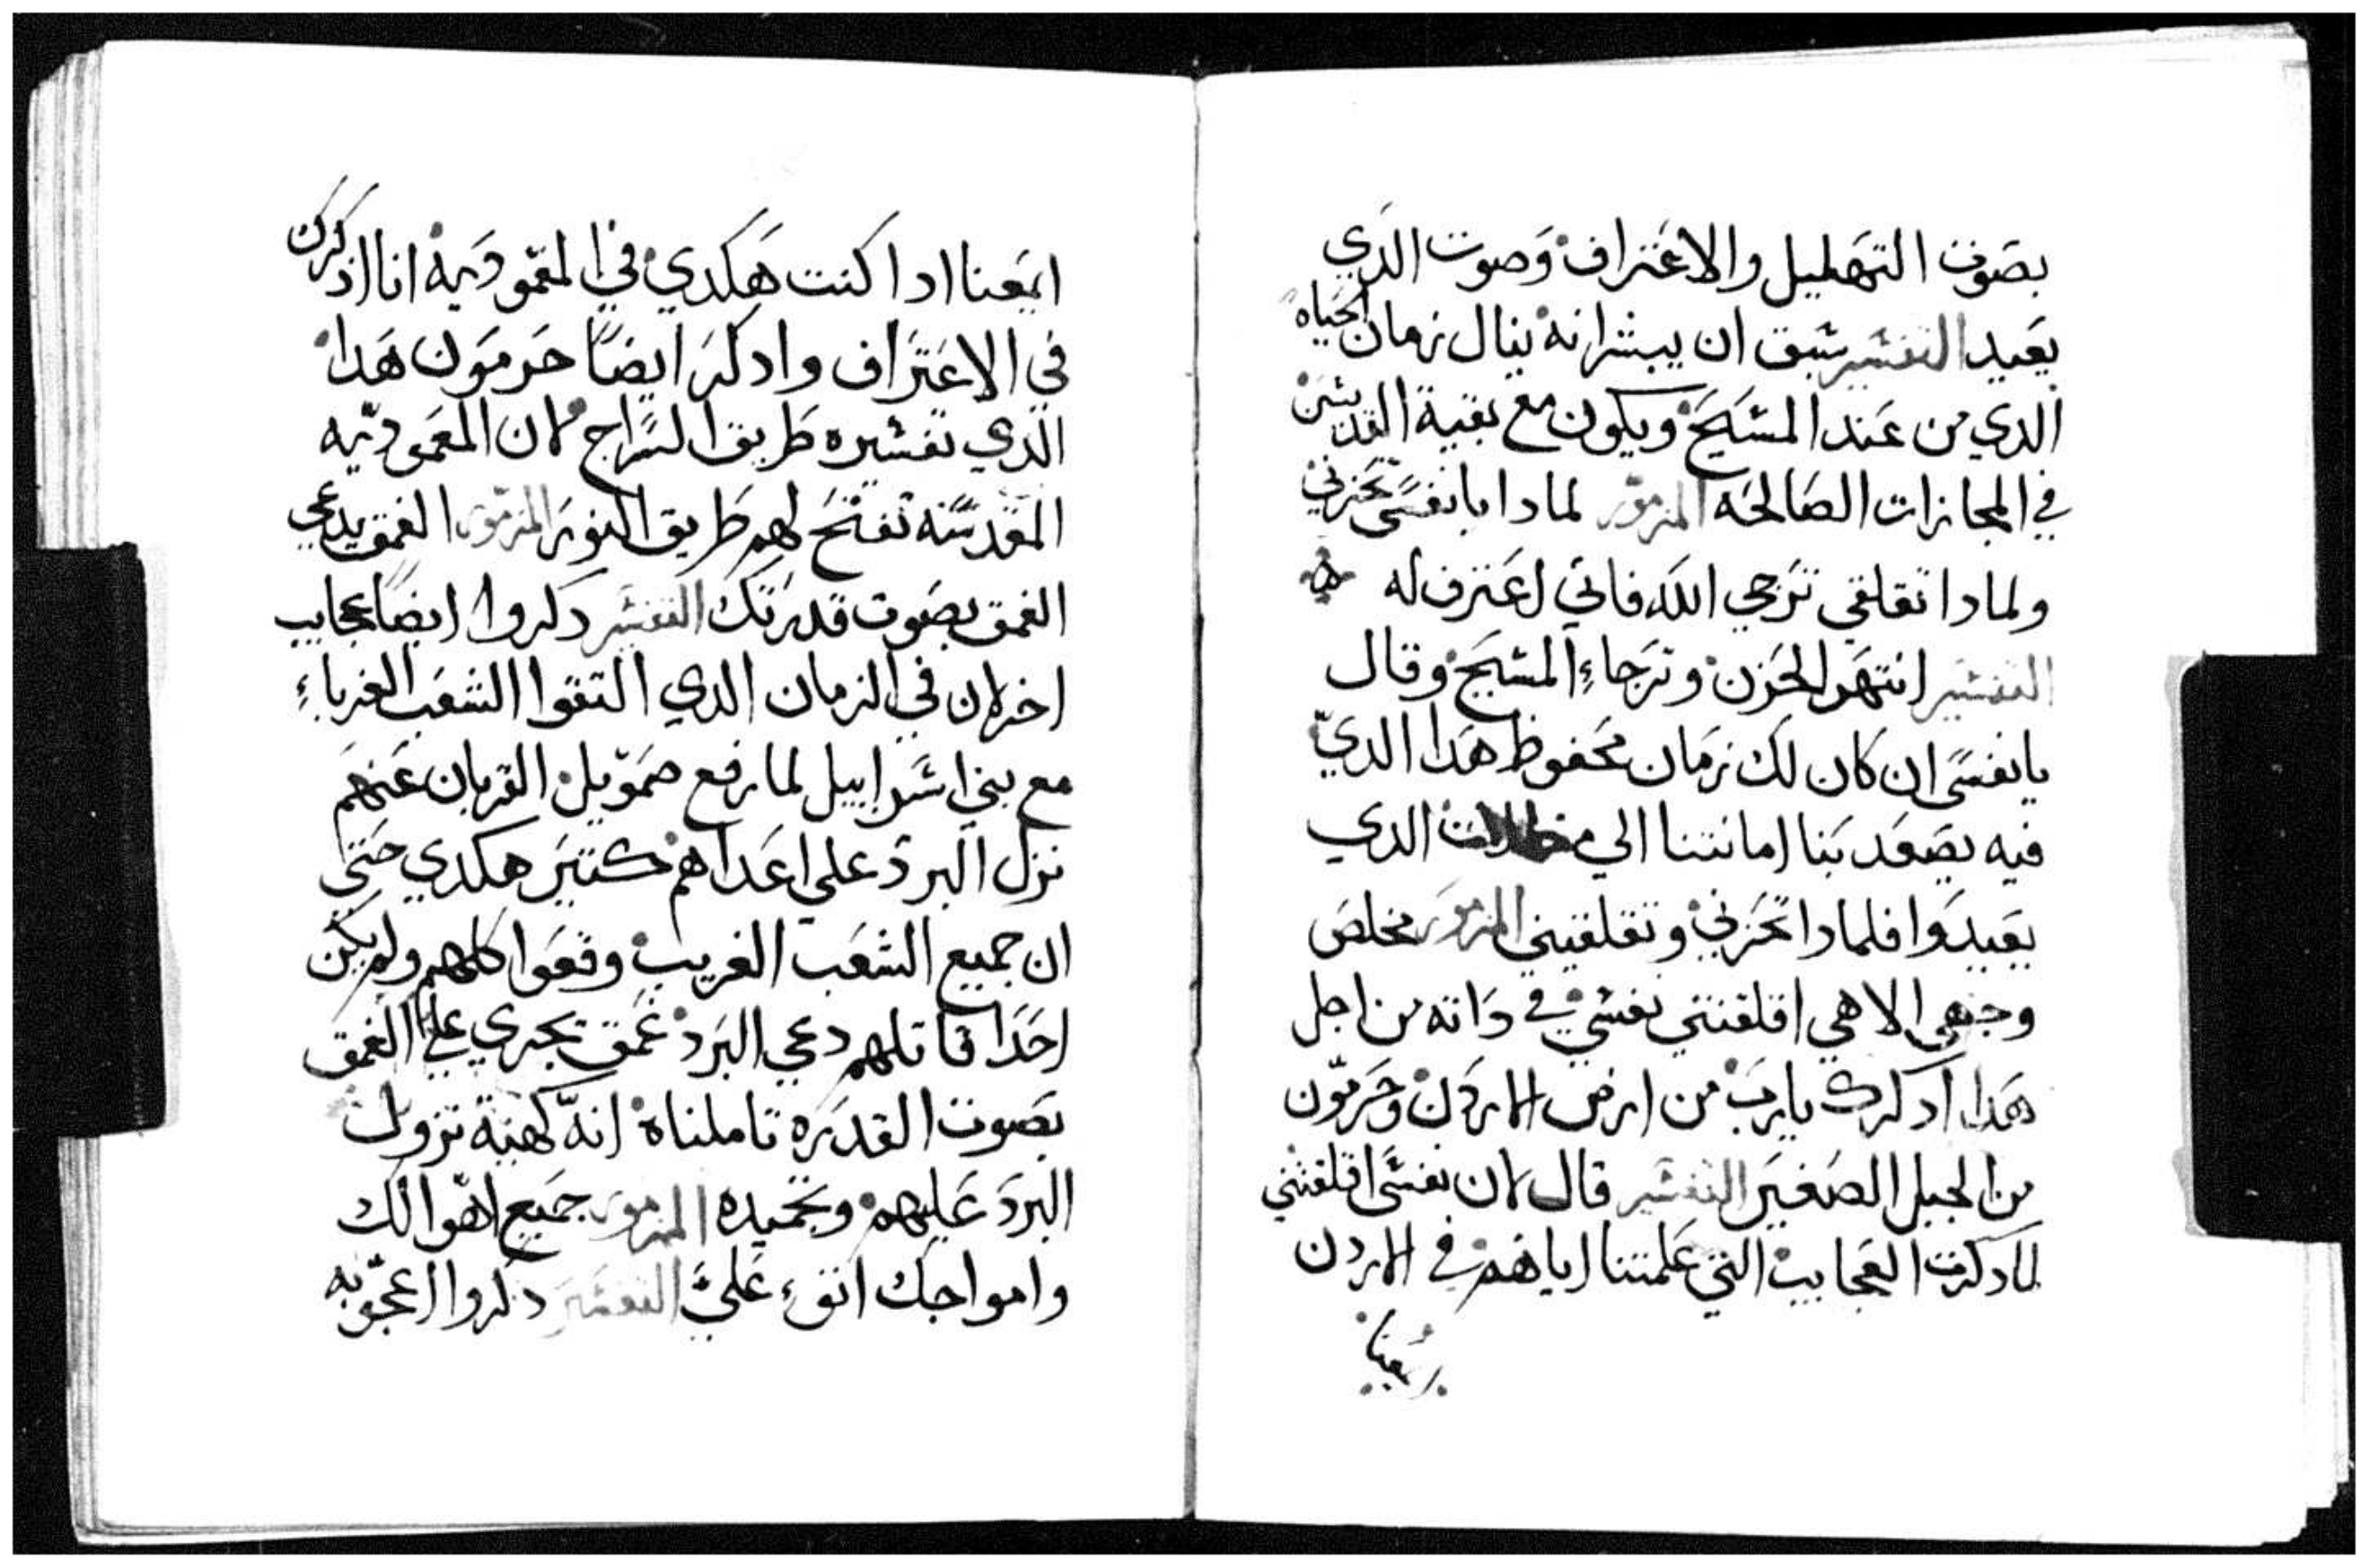 بصوت التهليل والاعتراف وصوت الدي
يعيد التفسير سبق ان يبشر انه ينال زمان الحياه
الدي من عند المسيح ويكون مع بقية القديسين
في المجازات الصالحه المزمور لمادا يا نفسي تحزني
ولمادا تقلقي ترجي الله فاني اعترف له
التفسير انتهر الحزن وترجاء المسيح وقال
يا نفسي ان كان لك زمان محفوظ هدا الدي
فيه يصعد بنا امانتنا الي الدي
يعيدوا فلمادا تحزني وتقلقيني المزمور مخلص
وجهي الاهي اقلقتني نفسي في داته من اجل
هدا ادكرك يا رب من ارض الاردن وحرمون
من الجبل الصغير التفسير قال لان نفسي اقلقتني
لما دكرت العجايب التي علمتنا اياهم في الاردن
ايمعنا ادا كنت هكدي في المعموديه انا ادكرك
في الاعتراف وادكر ايضا حرمون هدا
الدي تفسيره طريق السراج لان المعموديه
المقدسه تفتح لهم طريق النور المزمور الغمق يدعي
الغمق بصوت قدرتك التفسير دكروا ايضا عجايب
اخر كان في الزمان الدي التقوا الشعب الغرباء
مع بني اسرابيل لما رفع صمويل القربان عنهم
نزل البرد علي اعداهم كتير هكدي حتي
ان جميع الشعب الغريب وقعوا كلهم ولم يكن
احدا قاتلهم دعي البرد غمق تجري علي الغمق
بصوت القدره تاملناه انه كهية نزول
البرد عليهم وتجميده المزمور جميع اهوالك
وامواجك اتوء علي التفسير دكروا اعجوبه